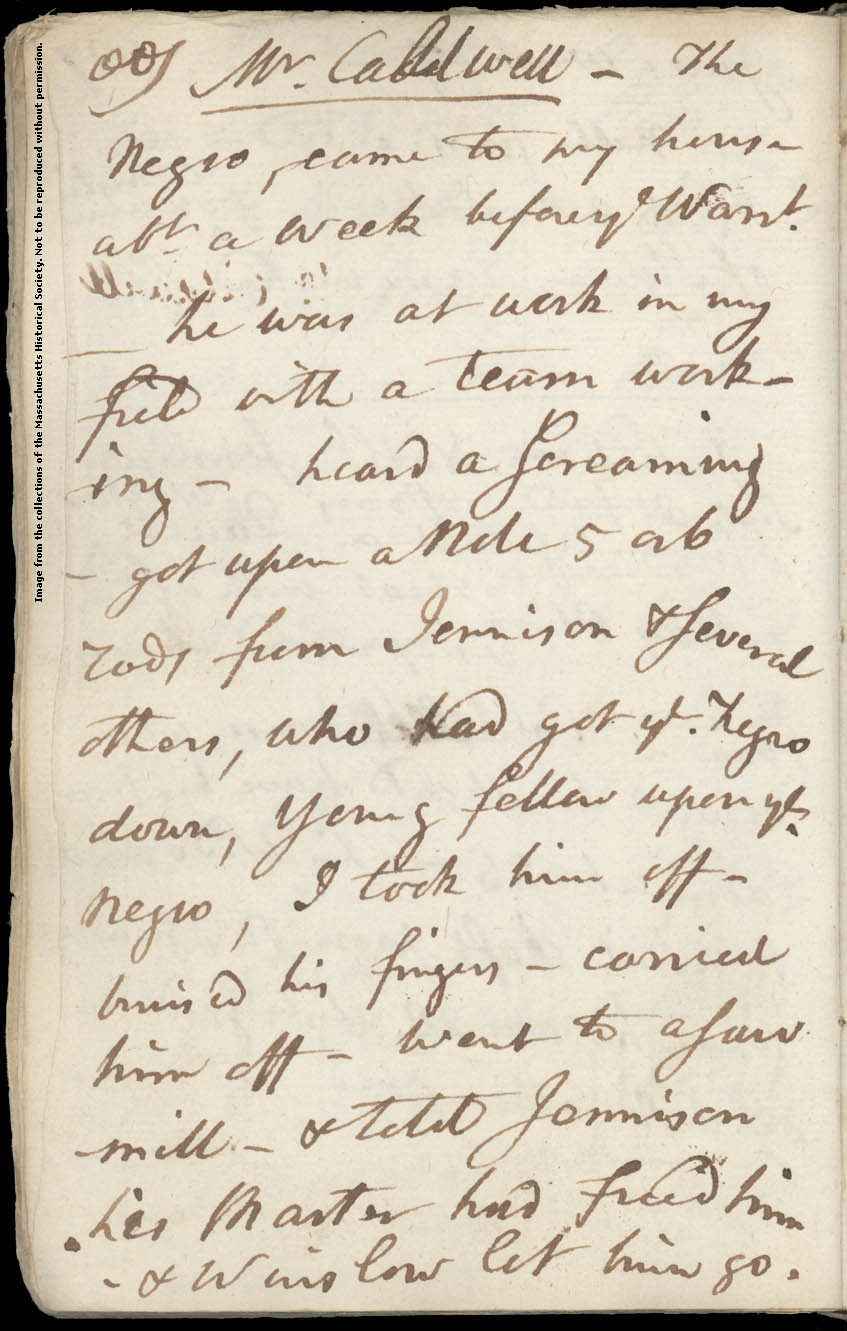 Mr. Caldwell - The
Negro, came to my house
abt. a week before ye Warrt.
he was at work in my
field with a team work-
ing - heard a screaming
- got upon a Nole 5 or 6
rods from Jennison & several
others, who had got ye. Negro
down, Young fellow upon ye.
Negro, I took him off -
bruised his fingers - carried
him off - went to a saw
mill - & told Jennison
his Master had freed him
- & Winslow let him go.
Image from the collections of the Massachusetts Historical Society. Not to be reproduced without permission.